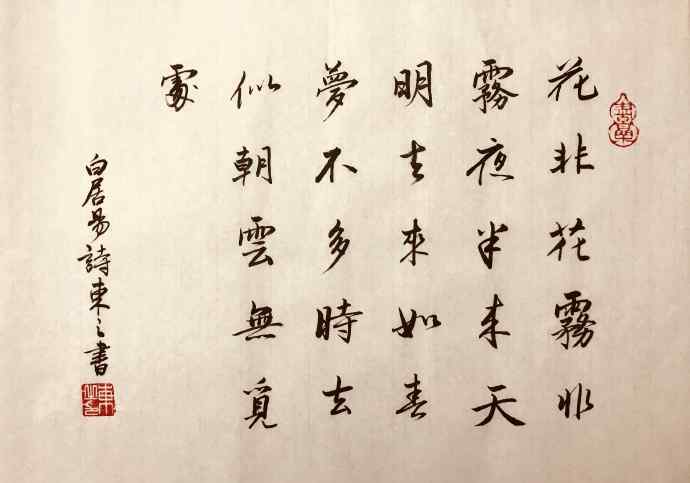 花非花霧非
霧夜半来天
明去來如春
夢不多時去
似朝雲無覓
處
白居易詩東之書